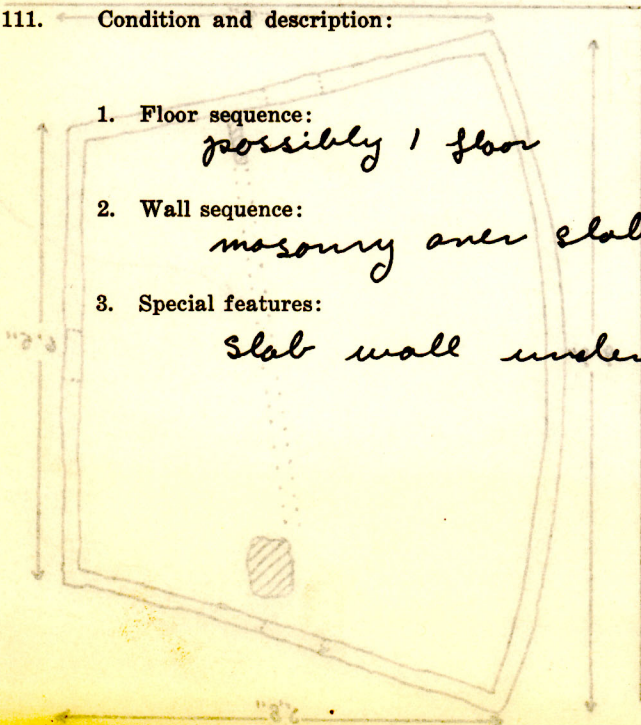 111. Condition and description:
1. Floor sequence:
possibly 1 floor
2. Wall sequence:
masonry over slab
3. Special features:
slab wall under